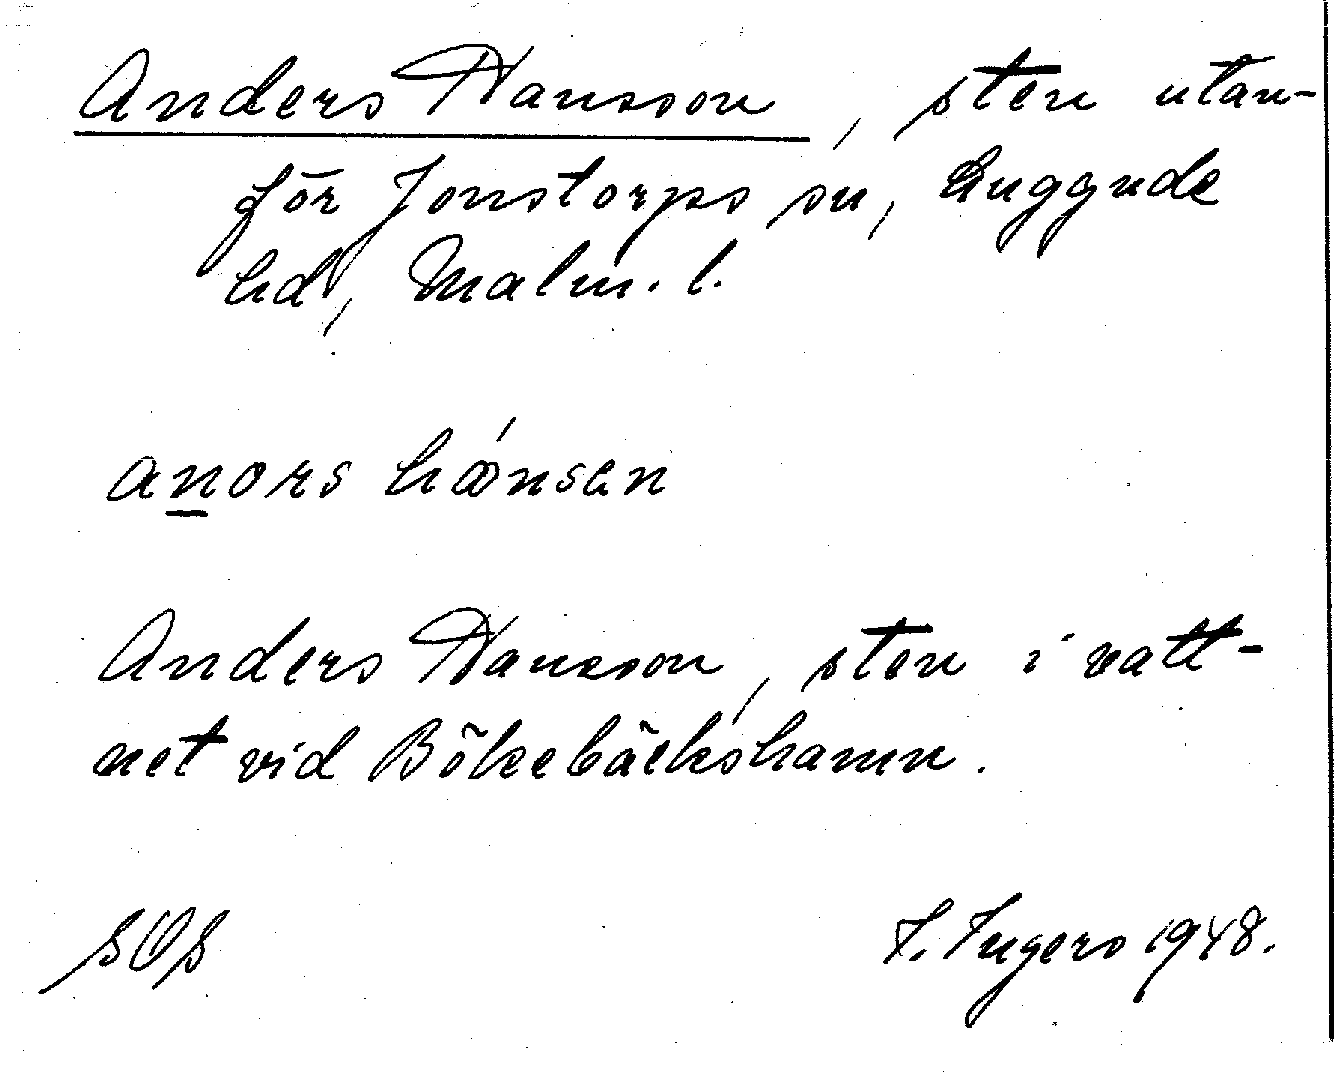 Anders Hansson, sten utan-
för Jonstorps sn, Luggude
hd, Malm. l.
anors hǿnsen
Anders Hansson, sten i vatt-
net vid Bökebäckshamn.
SOS
I. Ingers 1948.